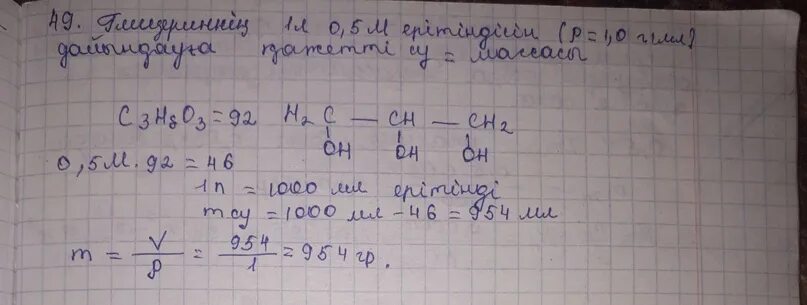 49. Глицериннің 1л 0,5М ерітіндісін (ρ=1,0 г/мл)
дайындауға қажетті су = массасы
C3H8O3=92 H2C — CH — CH2
OH OH OH
0,5М·92=46
1л = 1000 мл ерітінді
m су = 1000 мл - 46 = 954 мл
m = V/ρ = 954/1 = 954 гр.